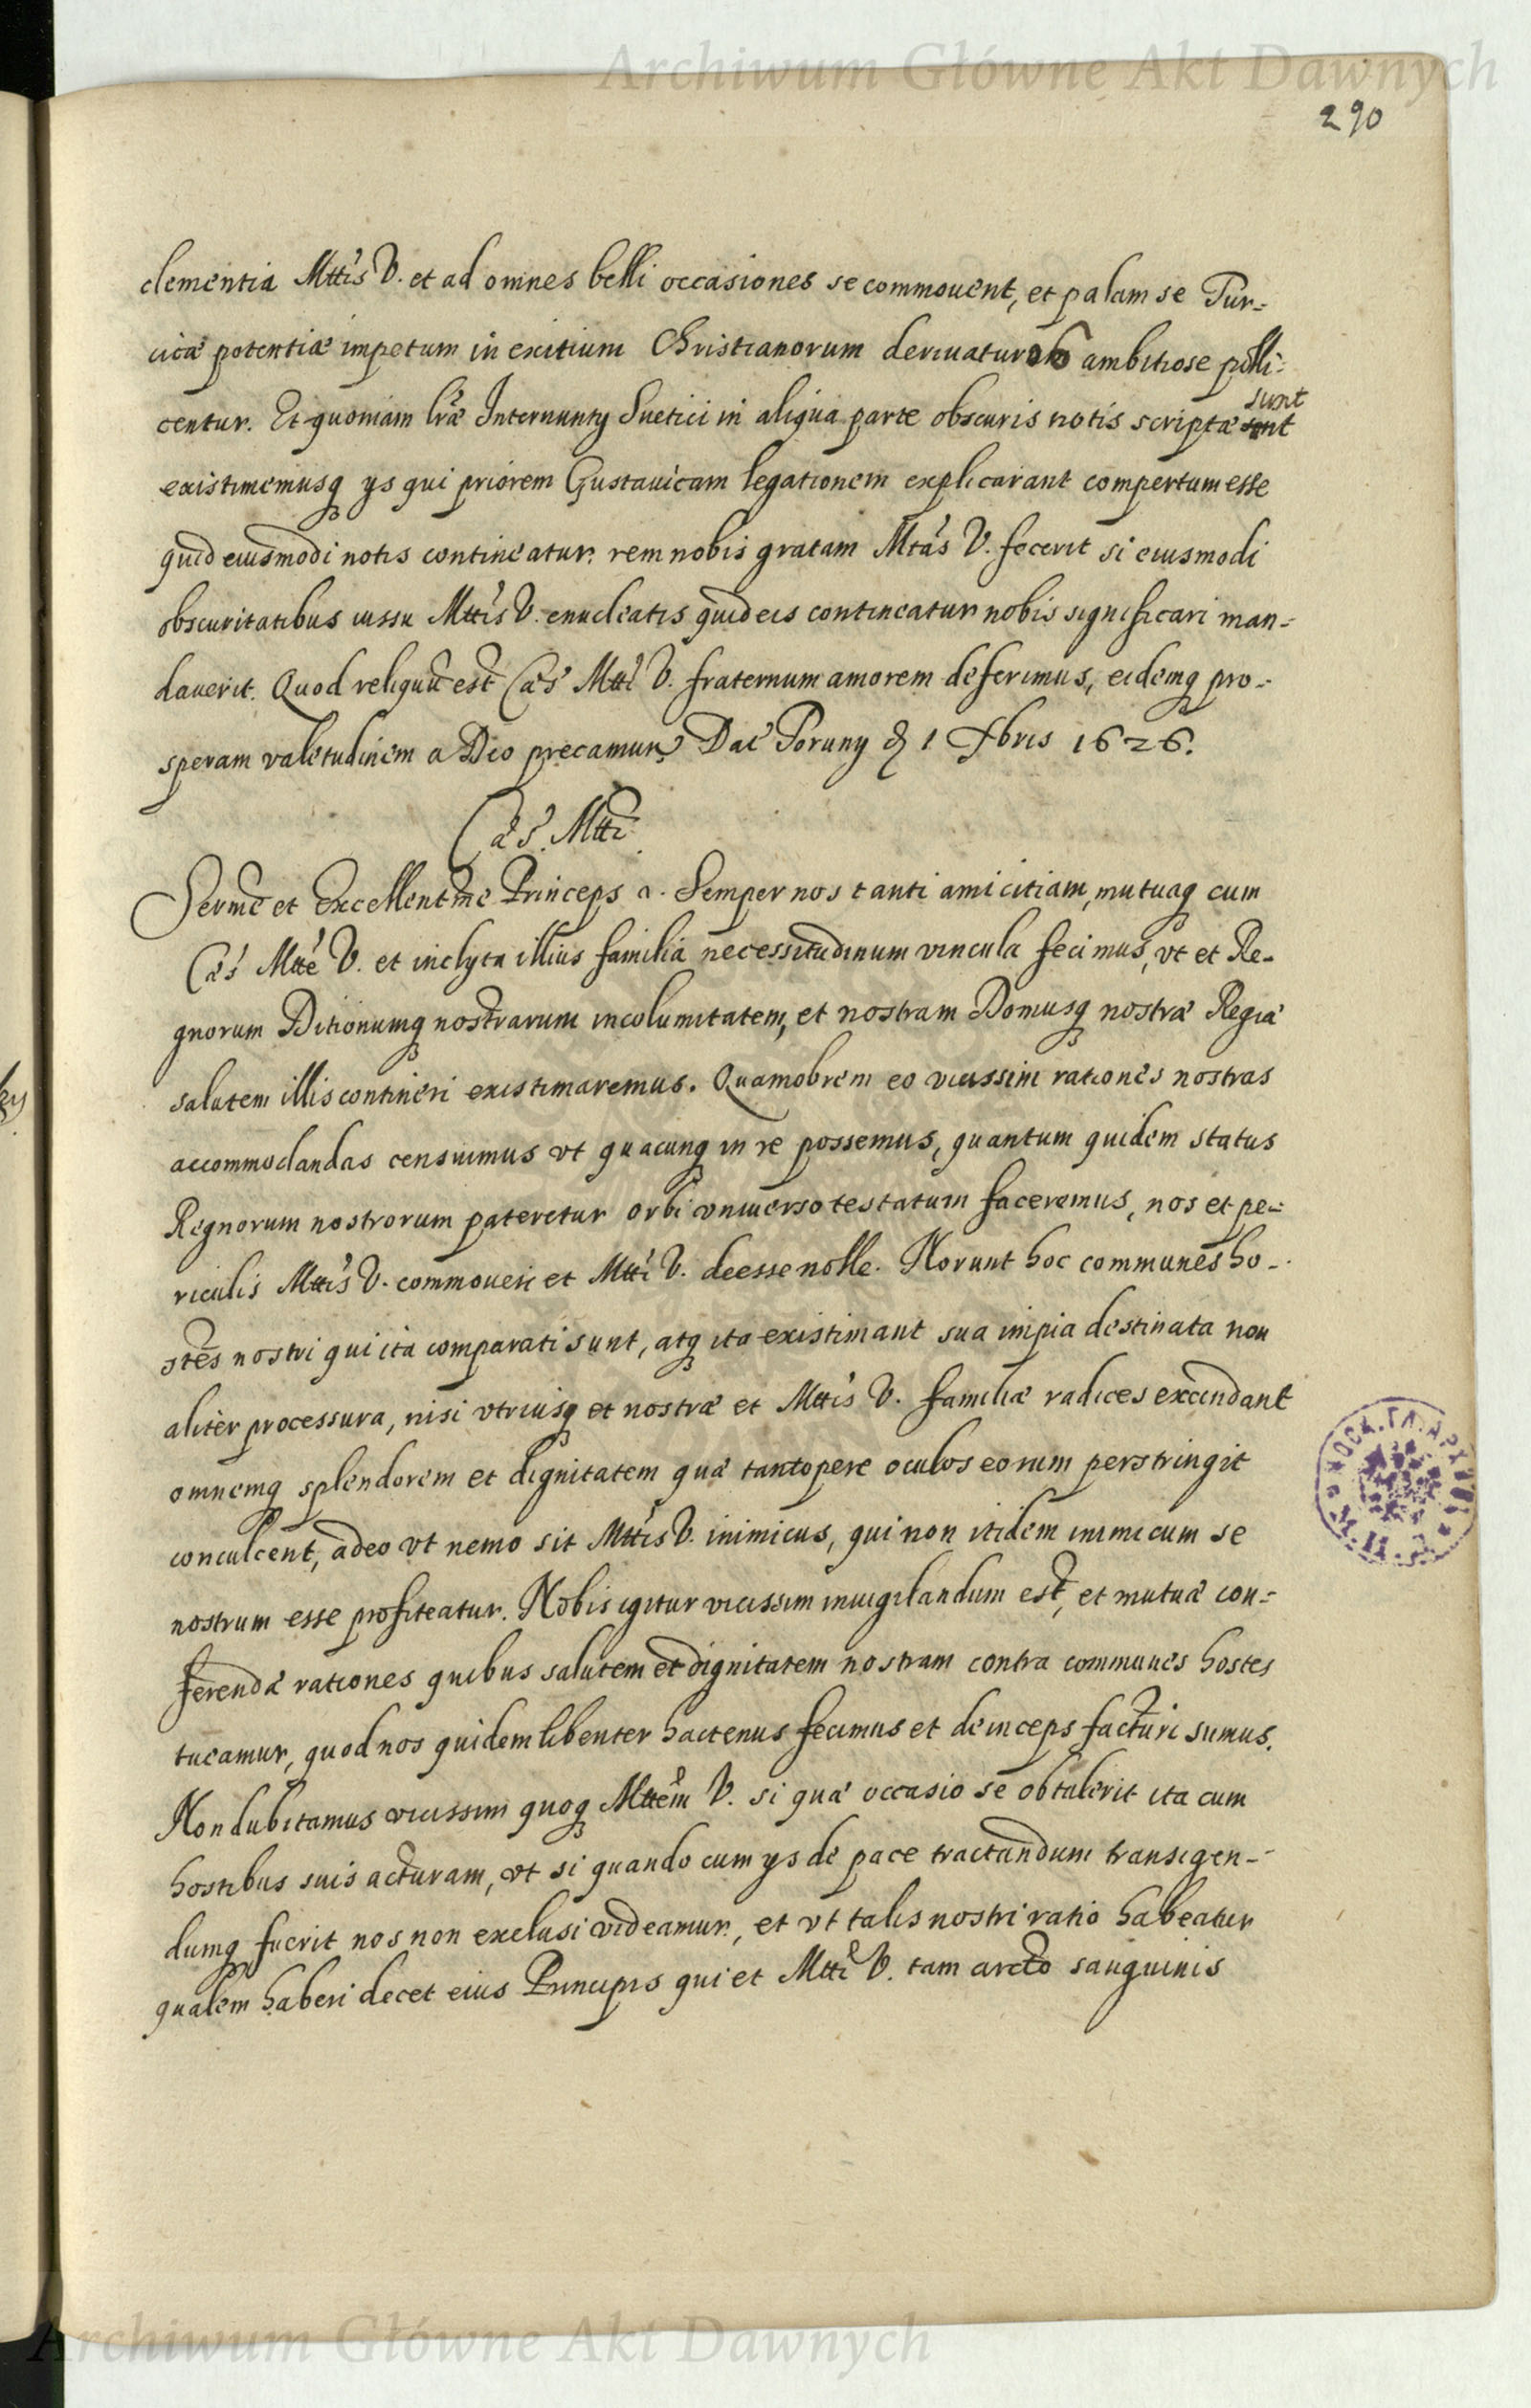 Archiwum Główne Akt Dawnych
290
clementia Mttis V. et ad omnes belli occasiones se commouent, et palam se Tur-
cicæ potentiæ impetum in exitium Christianorum deriuaturos ambitiose polli-
centur. Et quoniam lræ Internuntij Suetici in aliqua parte obscuris notis scriptæ sunt
existimemusq ijs qui priorem Gustauicam legationem explicarant compertum esse
quid eiusmodi notis contineatur. rem nobis gratam Mtas V. fecerit si eiusmodi
obscuritatibus iussu Mttis V. enucleatis quid eis contineatur nobis significari man-
dauerit. Quod reliquũ est Cæs Mtti V. fraternum amorem deferimus, eidemq pro-
speram valetudinem a Deo precamur. Dat Toruny 1 Xbris 1626.
Cæs. Mtti
Serme et Excellentme Princeps Semper nos tanti amicitiam, mutuaq cum
Cæs Mtte V. et inclyta illius familia necessitudinum vincula fecimus, vt et Re-
gnorum Ditionumq nostrarum incolumitatem, et nostram Domusq nostræ Regiæ
salutem illis contineri existimaremus. Quamobrem eo vicissim rationes nostras
accommodandas censuimus vt quacunq in re possemus, quantum quidem status
Regnorum nostrorum pateretur orbi vniuerso testatum faceremus, nos et pe-
riculis Mttis V. commoueri et Mtti V. deesse nolle. Norunt hoc communes ho-
stes nostri qui ita comparati sunt, atq ita existimant sua impia destinata non
aliter processura, nisi vtriusq et nostræ et Mttis V. familiæ radices excindant
omnemq splendorem et dignitatem quæ tantopere oculos eorum perstringit
conculcent, adeo vt nemo sit Mttis V. inimicus, qui non itidem inimicum se
nostrum esse profiteatur. Nobis igitur vicissim inuigilandum est, et mutuæ con-
ferendæ rationes quibus salutem et dignitatem nostram contra communes hostes
tueamur, quod nos quidem libenter hactenus fecimus et deinceps facturi sumus.
Non dubitamus vicissim quoq Mttem V. si quæ occasio se obtulerit ita cum
hostibus suis acturam, vt si quando cum ijs de pace tractandum transigen-
dumq fuerit nos non exclusi videamur, et vt talis nostri ratio habeatur
qualem haberi decet eius Principis qui et Mtti V. tam arcto sanguinis
Archiwum Główne Akt Dawnych